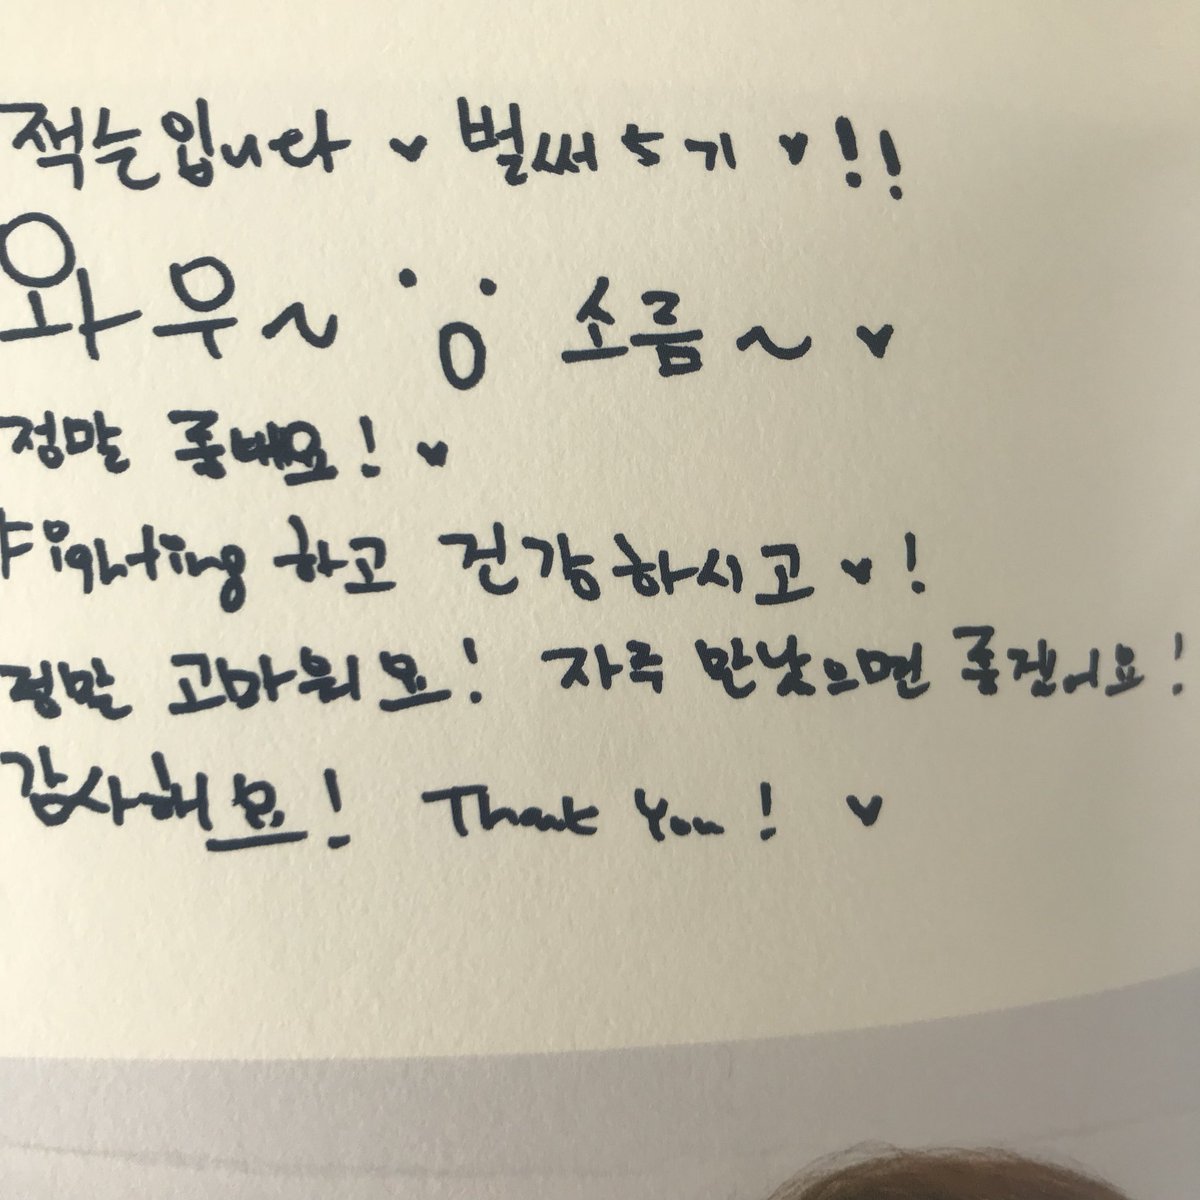 잭슨입니다 ♥ 벌써 5기 ♥!!
와우~ 소름~ ♥
정말 좋네요! ♥
Fighting 하고 건강하시고 ♥!
정말 고마워요! 자주 만났으면 좋겠어요!
감사해요! Thank You! ♥